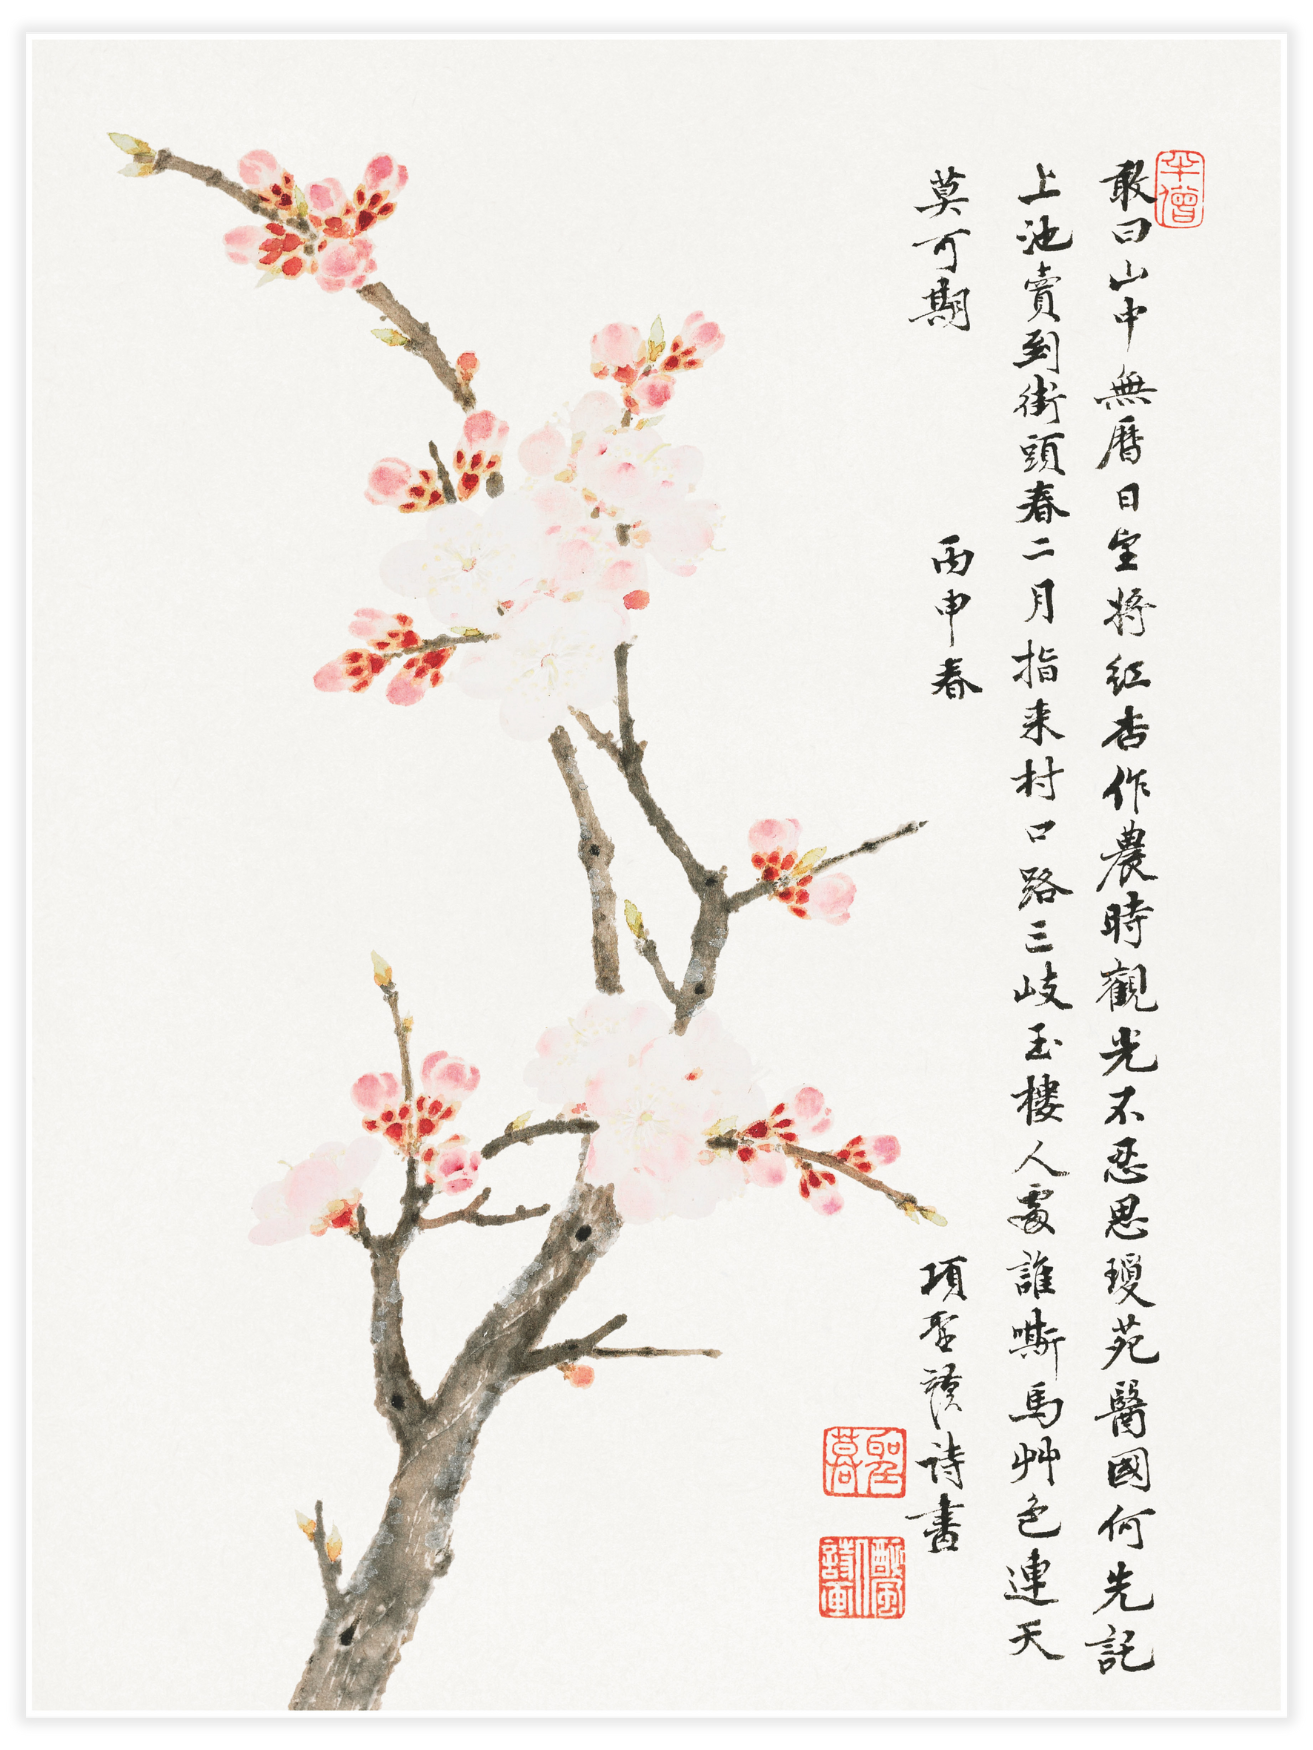 敢曰山中無曆日宜將紅杏作農時觀光不忍思瓊苑醫國何先託
上池賣到街頭春二月指来村口路三岐玉樓人處誰嘶馬艸色連天
莫可期 丙申春 項聖謨詩畫